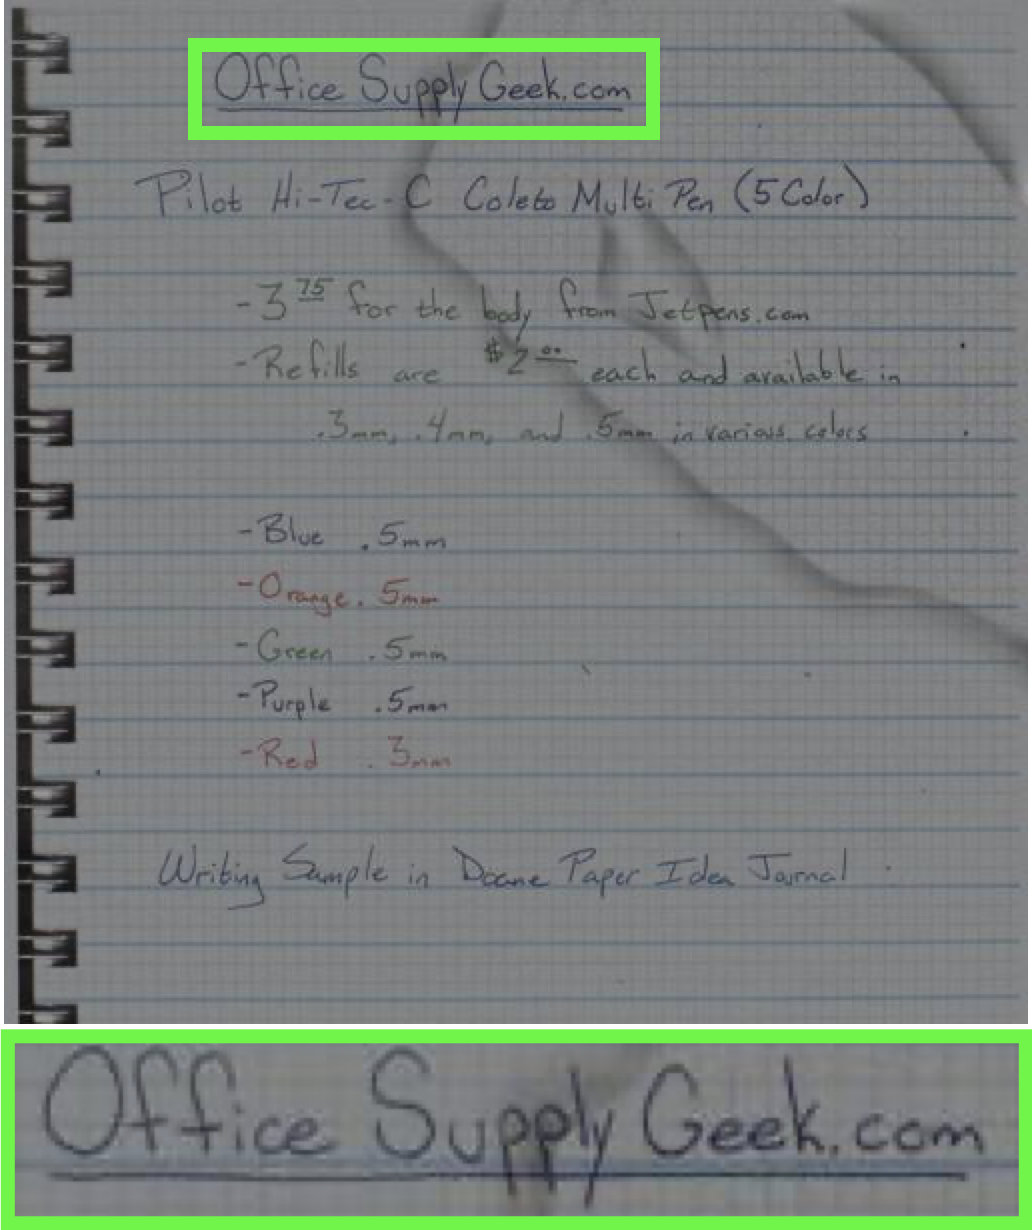 Office Supply Geek.com
Pilot Hi-Tec-C Coleto Multi Pen (5 Color)
- 3 75 for the body from Jetpens.com
- Refills are $2 00 each and available in
.3mm, .4mm, and .5mm in various colors
- Blue .5mm
- Orange .5mm
- Green .5mm
- Purple .5mm
- Red .3mm
Writing Sample in Doane Paper Idea Journal
Office Supply Geek.com